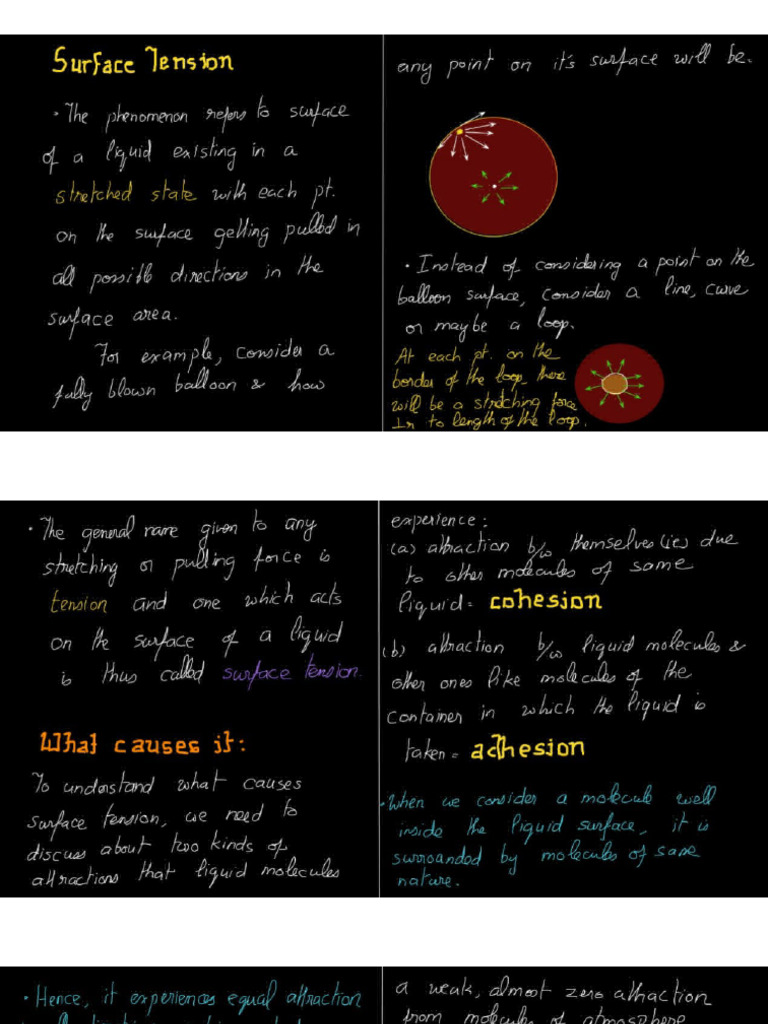 Surface Tension
• The phenomenon refers to surface
of a liquid existing in a
stretched state with each pt.
on the surface getting pulled in
all possible directions in the
surface area.
For example, consider a
fully blown balloon & how
any point on it's surface will be.
• Instead of considering a point on the
balloon surface, consider a line, curve
or maybe a loop.
At each pt. on the
border of the loop, there
will be a stretching force
Ir to length of the loop.
• The general name given to any
stretching or pulling force is
tension and one which acts
on the surface of a liquid
is thus called surface tension.
What causes it:
To understand what causes
surface tension, we need to
discuss about two kinds of
attractions that liquid molecules
experience:
(a) attraction b/w themselves (ie) due
to other molecules of same
liquid = cohesion
(b) attraction b/w liquid molecules &
other ones like molecules of the
container in which the liquid is
taken = adhesion
• When we consider a molecule well
inside the liquid surface, it is
surrounded by molecules of same
nature.
• Hence, it experiences equal attraction
a weak, almost zero attraction
from molecules of atmosphere